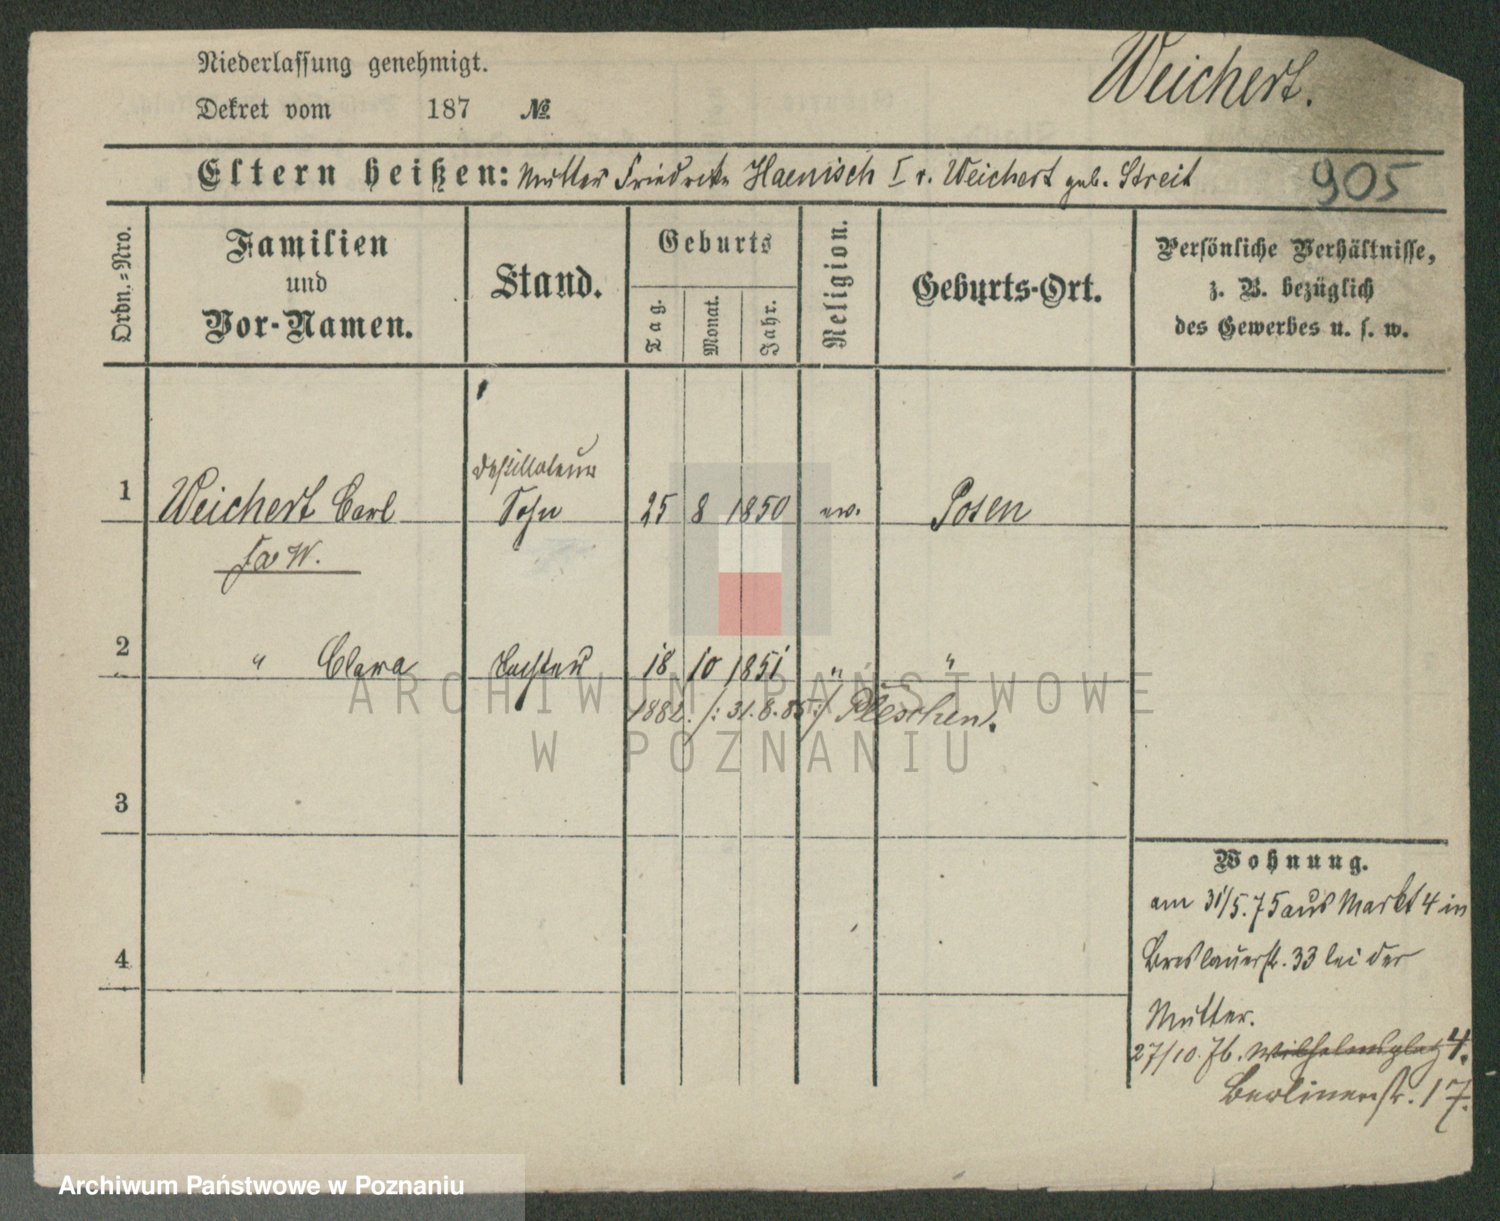 Niederlassung genehmigt.
Weichert.
Dekret vom 187 №
Eltern heißen: Mutter Friedreke Haenisch I v. Weichert geb. Streit
905
Ordn.-Nro.
Familien
und
Vor-Namen.
Stand.
Geburts
Tag.
Monat.
Jahr.
Religion.
Geburts-Ort.
Persönliche Verhältnisse,
z. B. bezüglich
des Gewerbes u. s. w.
Destillateur
1 Weichert Carl Sohn 25 8 1850 ev. Posen
W.
2 " Clara Tochter 18 10 1851 " "
1882. /: 31.8.85 :/ Pleschen.
3
4
Wohnung.
am 31/5. 75 aus Markt 4 in
Breslauerstr. 33 bei der
Mutter.
27/10. 76. Wilhelmsplatz 4.
Berlinerstr. 17.
ARCHIWUM PAŃSTWOWE
W POZNANIU
Archiwum Państwowe w Poznaniu